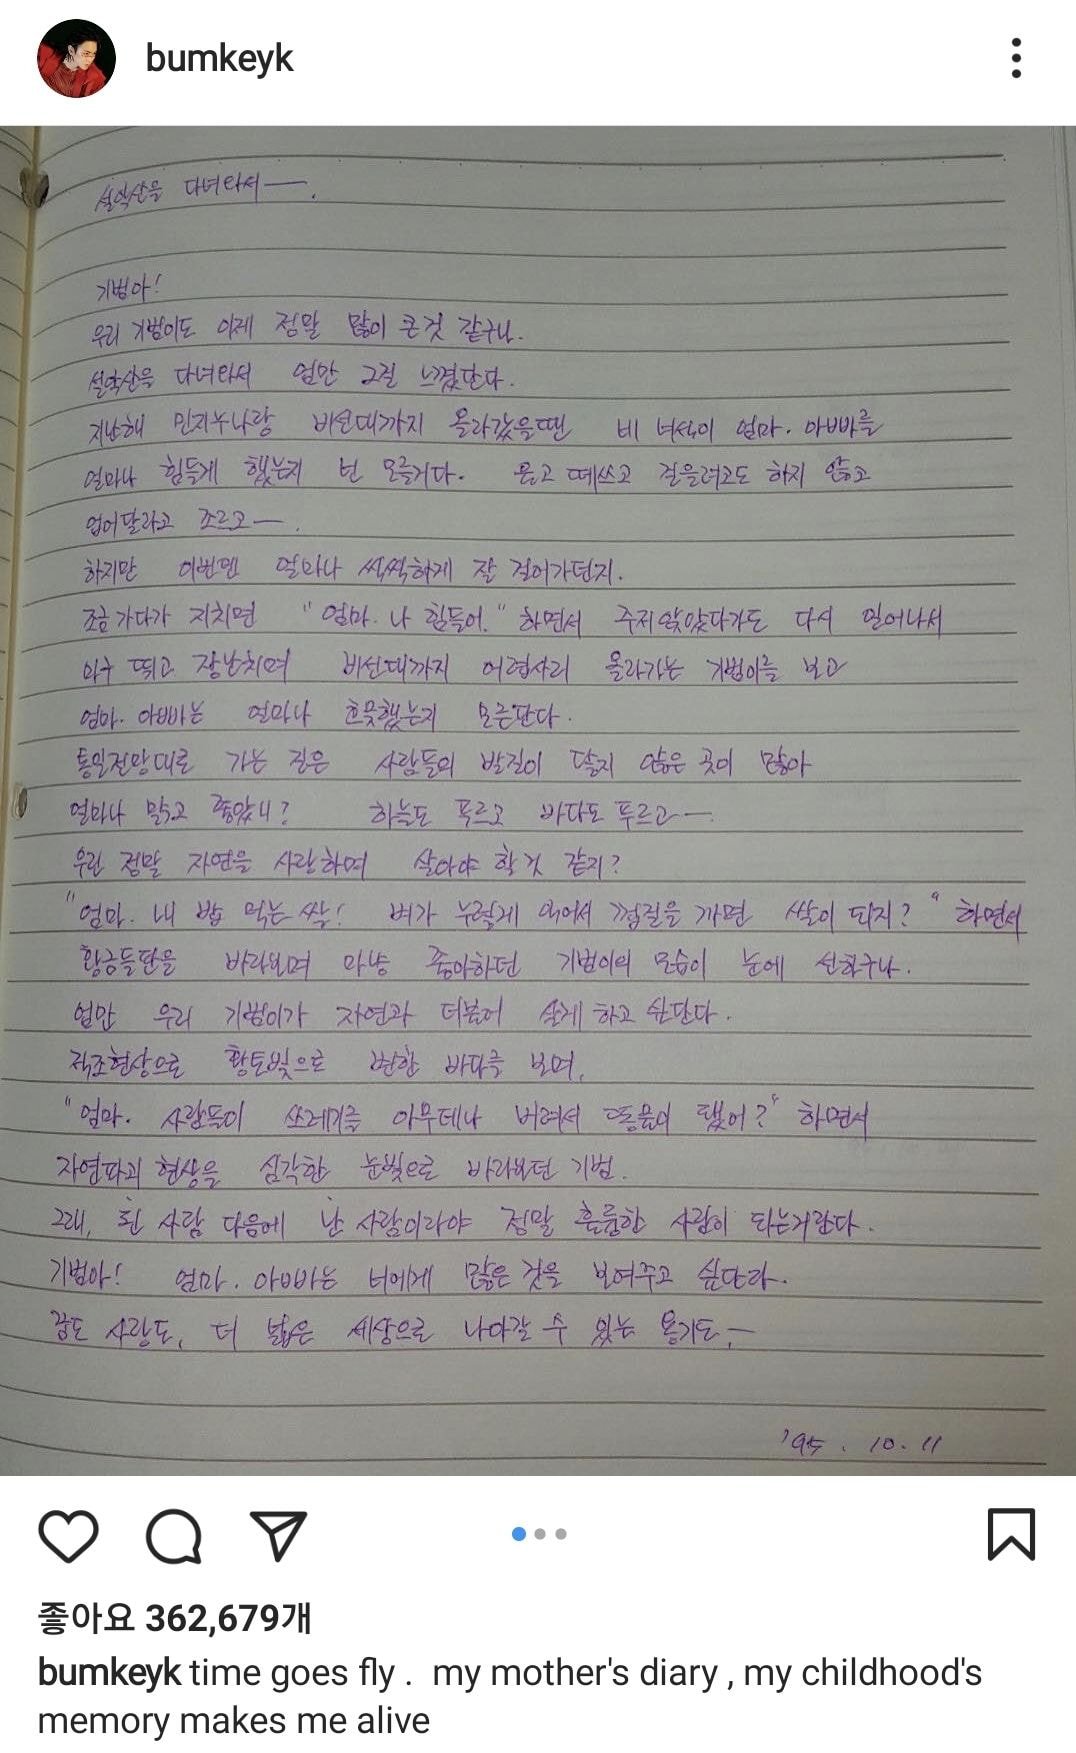 bumkeyk
설악산을 다녀와서ㅡ.
기범아!
우리 기범이도 이제 정말 많이 큰것 같구나.
설악산을 다녀와서 엄만 그걸 느꼈단다.
지난해 민지누나랑 비선대까지 올라갔을땐 네 녀석이 엄마. 아빠를
얼마나 힘들게 했는지 넌 모를거다. 울고 떼쓰고 걸을려고도 하지 않고
업어달라고 조르고ㅡ.
하지만 이번엔 얼마나 씩씩하게 잘 걸어가던지.
조금 가다가 지치면 "엄마. 나 힘들어." 하면서 주저앉았다가도 다시 일어나서
마구 뛰고 장난치며 비선대까지 어렵사리 올라가는 기범이를 보고
엄마. 아빠는 얼마나 흐뭇했는지 모른단다.
통일전망대로 가는 길은 사람들의 발길이 닿지 않은 곳이 많아
얼마나 맑고 좋았니? 하늘도 푸르고 바다도 푸르고ㅡ.
우린 정말 자연을 사랑하며 살아야 할것 같지?
"엄마. 내 밥 먹는 쌀! 벼가 누렇게 익어서 껍질을 까면 쌀이 되지?" 하면서
황금들판을 바라보며 마냥 좋아하던 기범이의 모습이 눈에 선하구나.
엄만 우리 기범이가 자연과 더불어 살게 하고 싶단다.
적조현상으로 황토빛으로 변한 바다를 보며,
"엄마. 사람들이 쓰레기를 아무데나 버려서 똥물이 됐어?" 하면서
자연파괴 현상을 심각한 눈빛으로 바라보던 기범.
그래, 된 사람 다음에 난 사람이라야 정말 훌륭한 사람이 되는거란다.
기범아! 엄마. 아빠는 너에게 많은 것을 보여주고 싶단다.
꿈도 사랑도, 더 넓은 세상으로 나아갈 수 있는 용기도.ㅡ
'95. 10. 11
좋아요 362,679개
bumkeyk time goes fly . my mother's diary , my childhood's
memory makes me alive